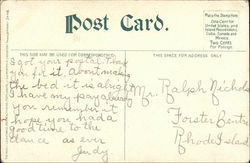 Post Card.
Place the Stamp Here
One Cent for
United States
and Island
Possessions,
Cuba, Canada and
Mexico.
Two Cents
For Foreign.
THIS SIDE MAY BE USED FOR CORRESPONDENCE
THIS SPACE FOR ADDRESS ONLY
I got your postal. Thank
you for it, about making
the bed it is alright
I have my pay always
you remember it
hope you had a
good time to the
dance as ever
Judy
Mr. Ralph Nichols
Foster Centre
Rhode Island